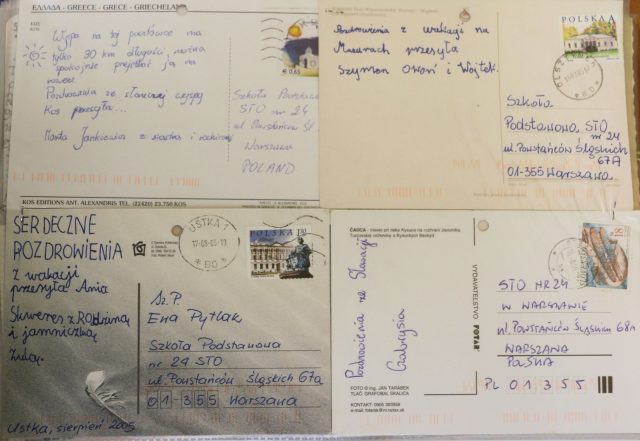 ΕΛΛΑΔΑ - GREECE - GRECE - GRIECHELAND
Wyspa na tej pocztówce ma
tylko 30 km długości, można
spokojnie przejechać ją na
rowerze.
Pozdrowienia ze słonecznej wyspy
Kos przesyła...
Marta Jankiewicz z siostrą i rodzicami
€ 0,65
Szkoła Podstawowa
STO nr 24
ul. Powstańców Śl.
Warszawa
POLAND
KOS EDITIONS ANT. ALEXANDRIS TEL. (22420) 23.750 KOS
Pozdrowienia z wakacji na
Mazurach przesyła
Szymon i Wojtek.
POLSKA
Szkoła
Podstawowa STO
nr 24
ul. Powstańców Śląskich
67A
01-355 Warszawa
SERDECZNE
POZDROWIENIA
Z wakacji
przesyła Ania
Skweres z Rodziną
i jamniczką
Zulą.
Ustka, sierpień 2005
USTKA 1
17-08-05-19
POLSKA
Sz. P.
Ewa Pytlak
Szkoła Podstawowa
nr 24 STO
ul. Powstańców Śląskich 67a
01-355 Warszawa
ČADCA
Pozdrowienia ze Słowacji
Gabrysia
VYDAVATEĽSTVO FOTAR
FOTO © Ing. JAN TARABEK
TLAČ: GRAFOBAL SKALICA
STO NR 24
W WARSZAWIE
ul. POWSTAŃCÓW ŚLĄSKICH 68a
WARSZAWA
POLSKA
PL 01355